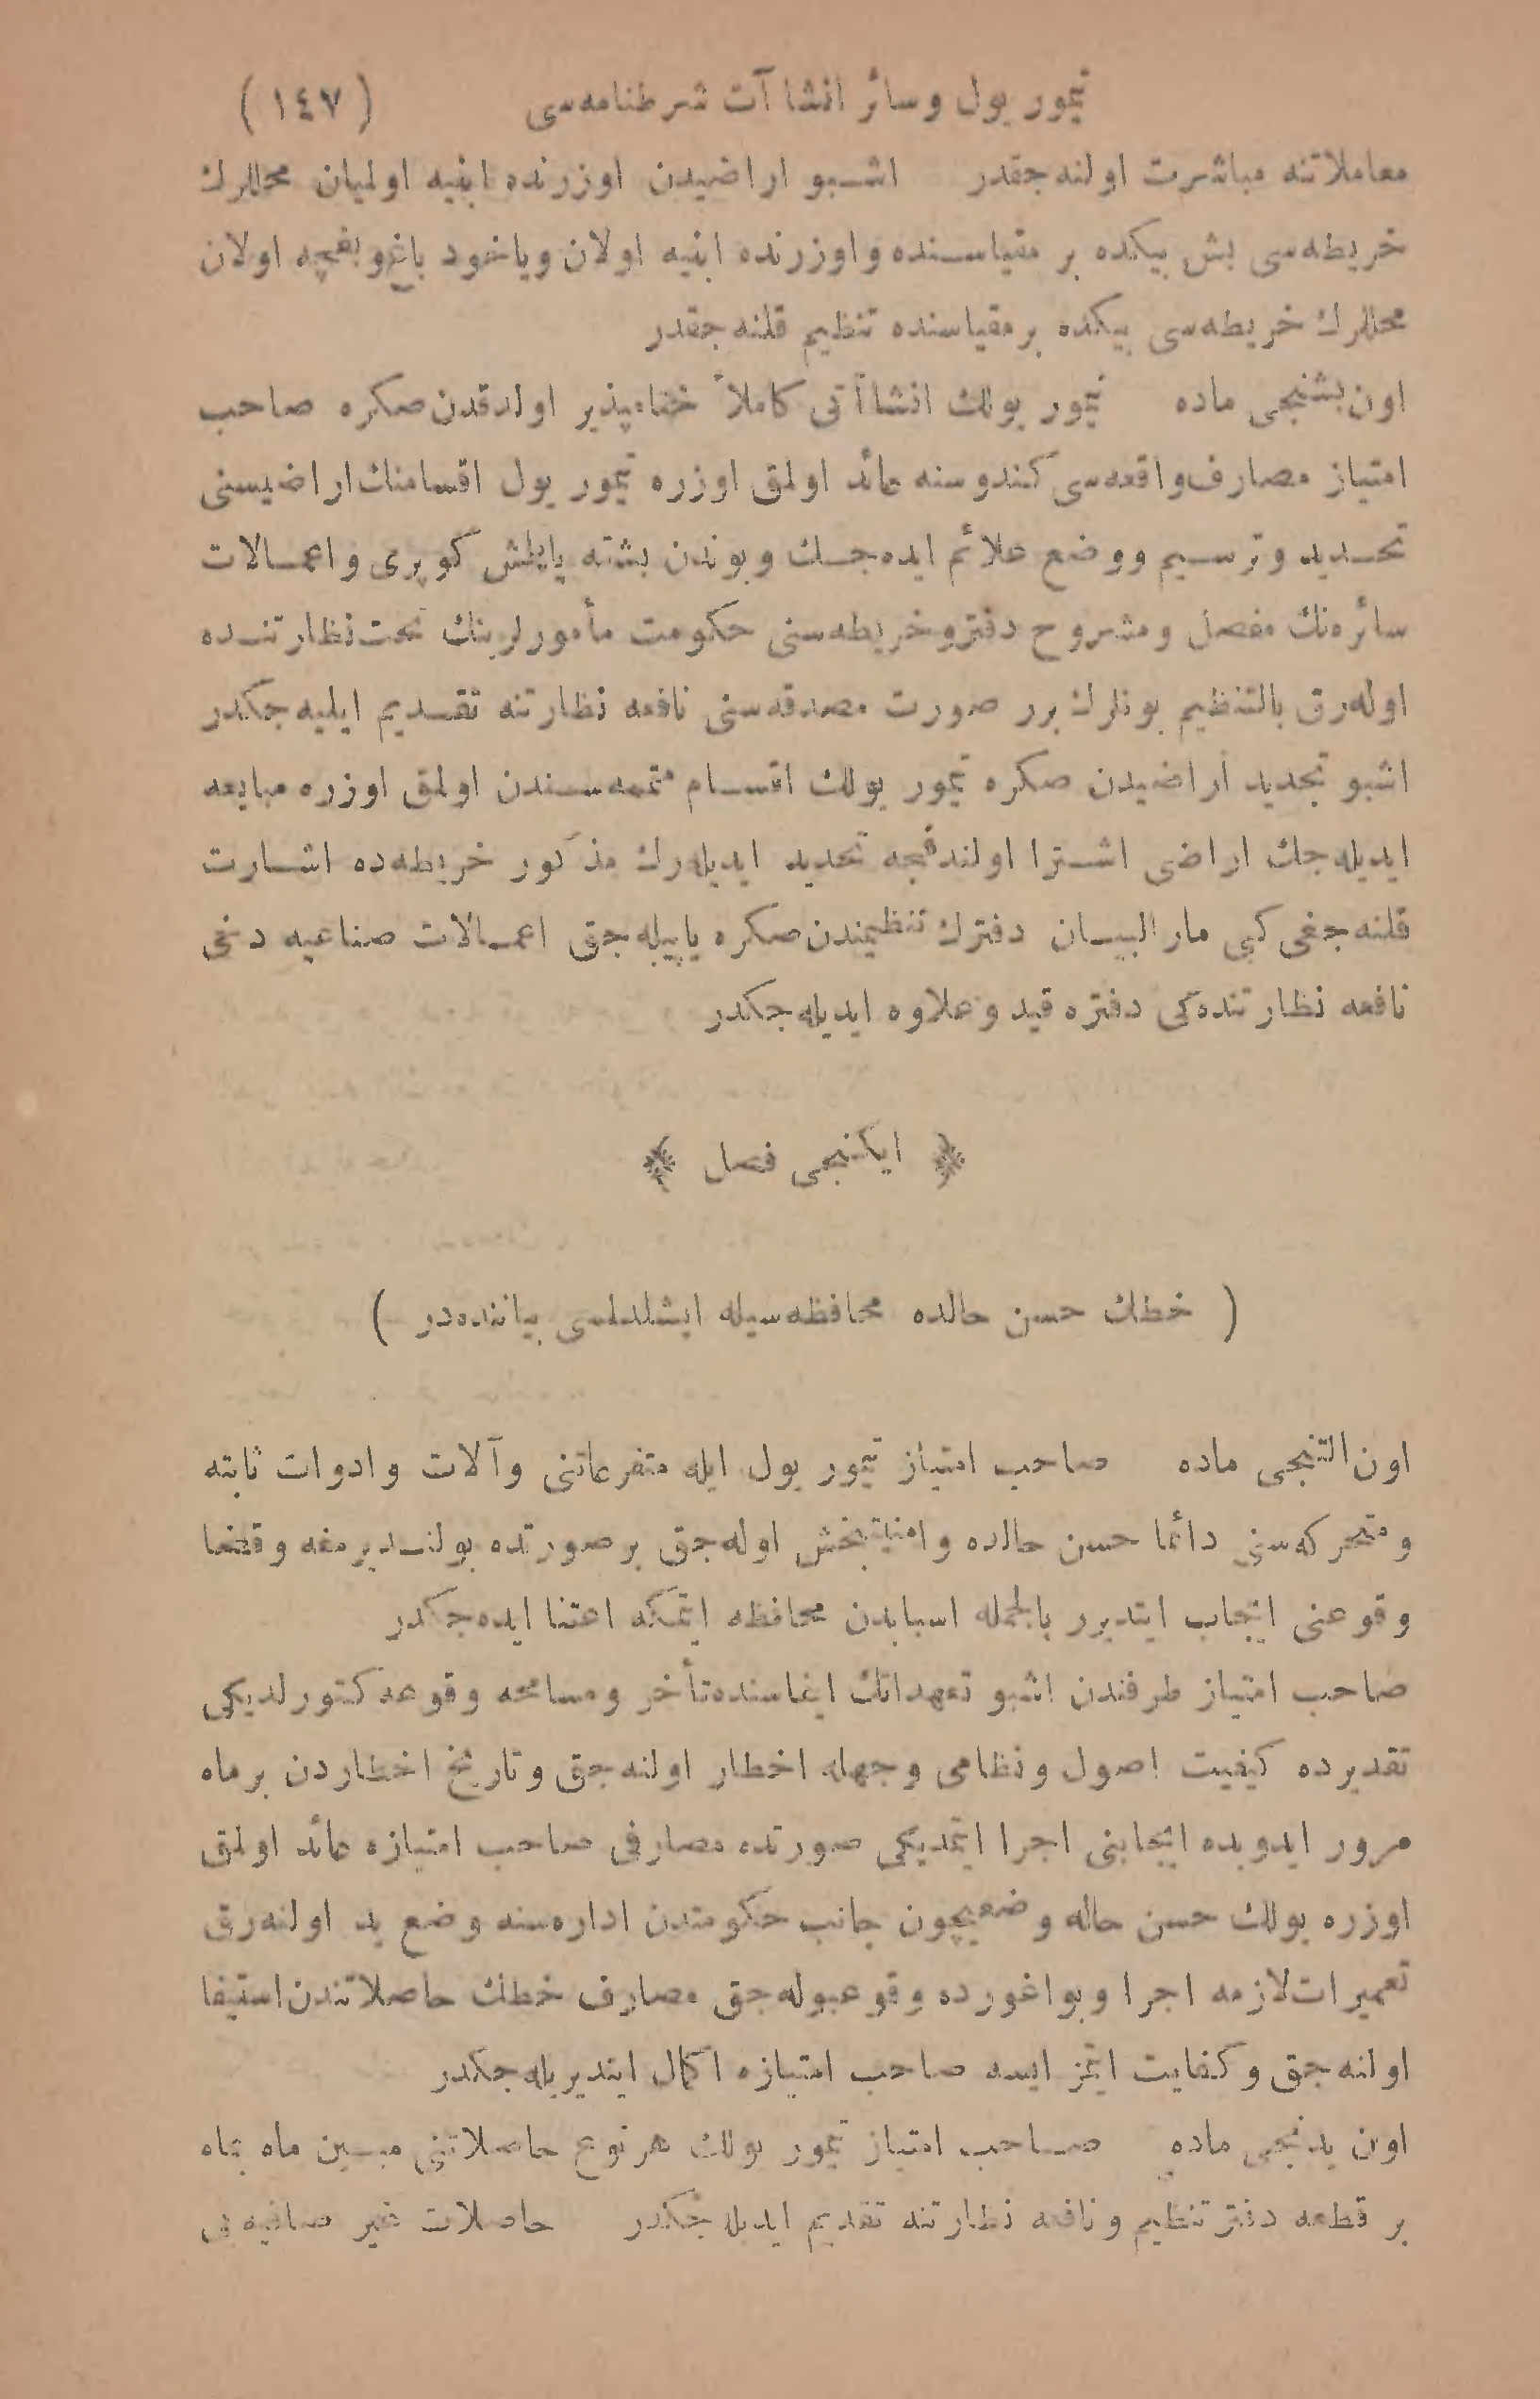 تیمور یول و سائر انشا آت شرطنامه‌سی (١٤٧)
معاملاتنه مباشرت اولنه‌جقدر اشبو اراضیدن اوزرنده ابنیه اولمیان محللرك
خریطه‌سی بش بیكده بر مقیاسنده و اوزرنده ابنیه اولان ویاخود باغ و بغچه اولان
محللرك خریطه‌سی بیكده بر مقیاسنده تنظیم قلنه جقدر
اون بشنجی ماده تیمور یولك انشاآتی كاملاً ختامپذیر اولدقدن صكره صاحب
امتیاز مصارف واقعه‌سی كندوسنه عائد اولمق اوزره تیمور یول اقسامنك اراضیسنی
تحدید و ترسیم ووضع علائم ایده‌جك و بوندن بشقه یاپلمش كوپری و اعمالات
سائره‌نك مفصل و مشروح دفتر و خریطه‌سنی حكومت مأمورلرینك تحت نظارتنده
اوله‌رق بالتنظیم بونلرك برر صورت مصدقه‌سنی نافعه نظارتنه تقدیم ایلیه‌جكدر
اشبو تحدید اراضیدن صكره تیمور یولك اقسام متممه‌سندن اولمق اوزره مبایعه
ایدیله‌جك اراضی اشترا اولندقجه تحدید ایدیله‌رك مذكور خریطه‌ده اشارت
قلنه جغی كبی مارالبیان دفترك تنظیمندن صكره یاپیله‌جق اعمالات صناعیه دخی
نافعه نظارتنده‌كی دفتره قید و علاوه ایدیله‌جكدر
﴿ ایكنجی فصل ﴾
( خطك حسن حالده محافظه‌سیله ایشلدلمسی بیاننده‌در )
اون التنجی ماده صاحب امتیاز تیمور یول ایله متفرعاتنی و آلات و ادوات ثابته
و متحركه‌سنی دائما حسن حالده و امنیتبخش اوله‌جق بر صورتده بولندیرمغه و قضا
وقوعنی ایجاب ایتدیرر بالجمله اسبابدن محافظه ایتمكه اعتنا ایده‌جكدر
صاحب امتیاز طرفندن اشبو تعهداتك ایفاسنده تأخر و مسامحه وقوعه كتورلدیكی
تقدیرده كیفیت اصول و نظامی وجهله اخطار اولنه‌جق و تاریخ اخطاردن بر ماه
مرور ایدوبده ایجابنی اجرا ایتمدیكی صورتده مصارفی صاحب امتیازه عائد اولمق
اوزره یولك حسن حاله وضعیچون جانب حكومتدن اداره‌سنه وضع ید اولنه‌رق
تعمیرات لازمه اجرا و بواغورده وقوعبوله‌جق مصارف خطك حاصلاتندن استیفا
اولنه‌جق و كفایت ایتمز ایسه صاحب امتیازه اكمال ایتدیریله‌جكدر
اون یدنجی ماده صاحب امتیاز تیمور یولك هر نوع حاصلاتنی مبین ماه بماه
بر قطعه دفتر تنظیم و نافعه نظارتنه تقدیم ایدیله جكدر حاصلات غیر صافیه یی